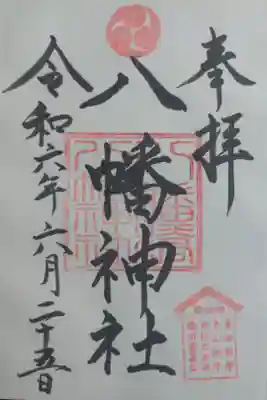 奉拝
八幡神社
令和六年六月二十五日